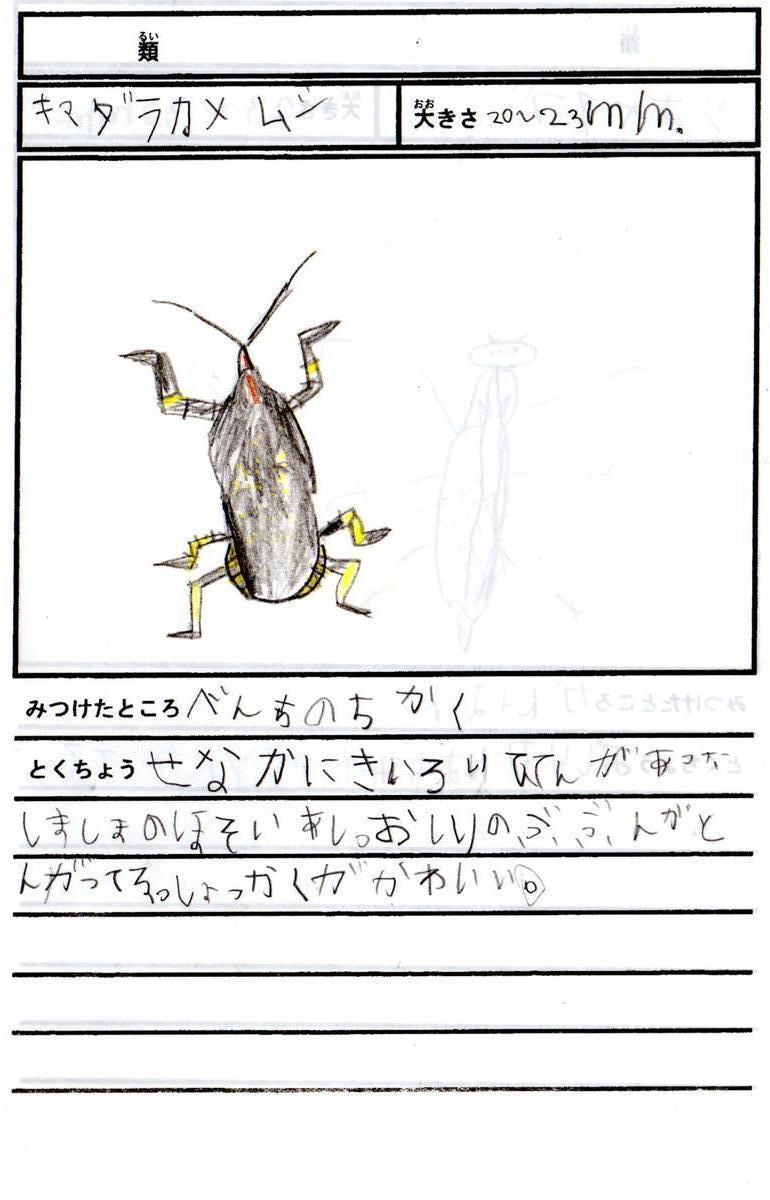 類
るい
キマダラカメムシ 大きさ 20〜23mm.
おお
みつけたところ べんものちかく
とくちょう せなかにきいろいてんがあった
しましまのほそいあし。おしりのぶぶんがと
んがってる。しょっかくがかわいい。